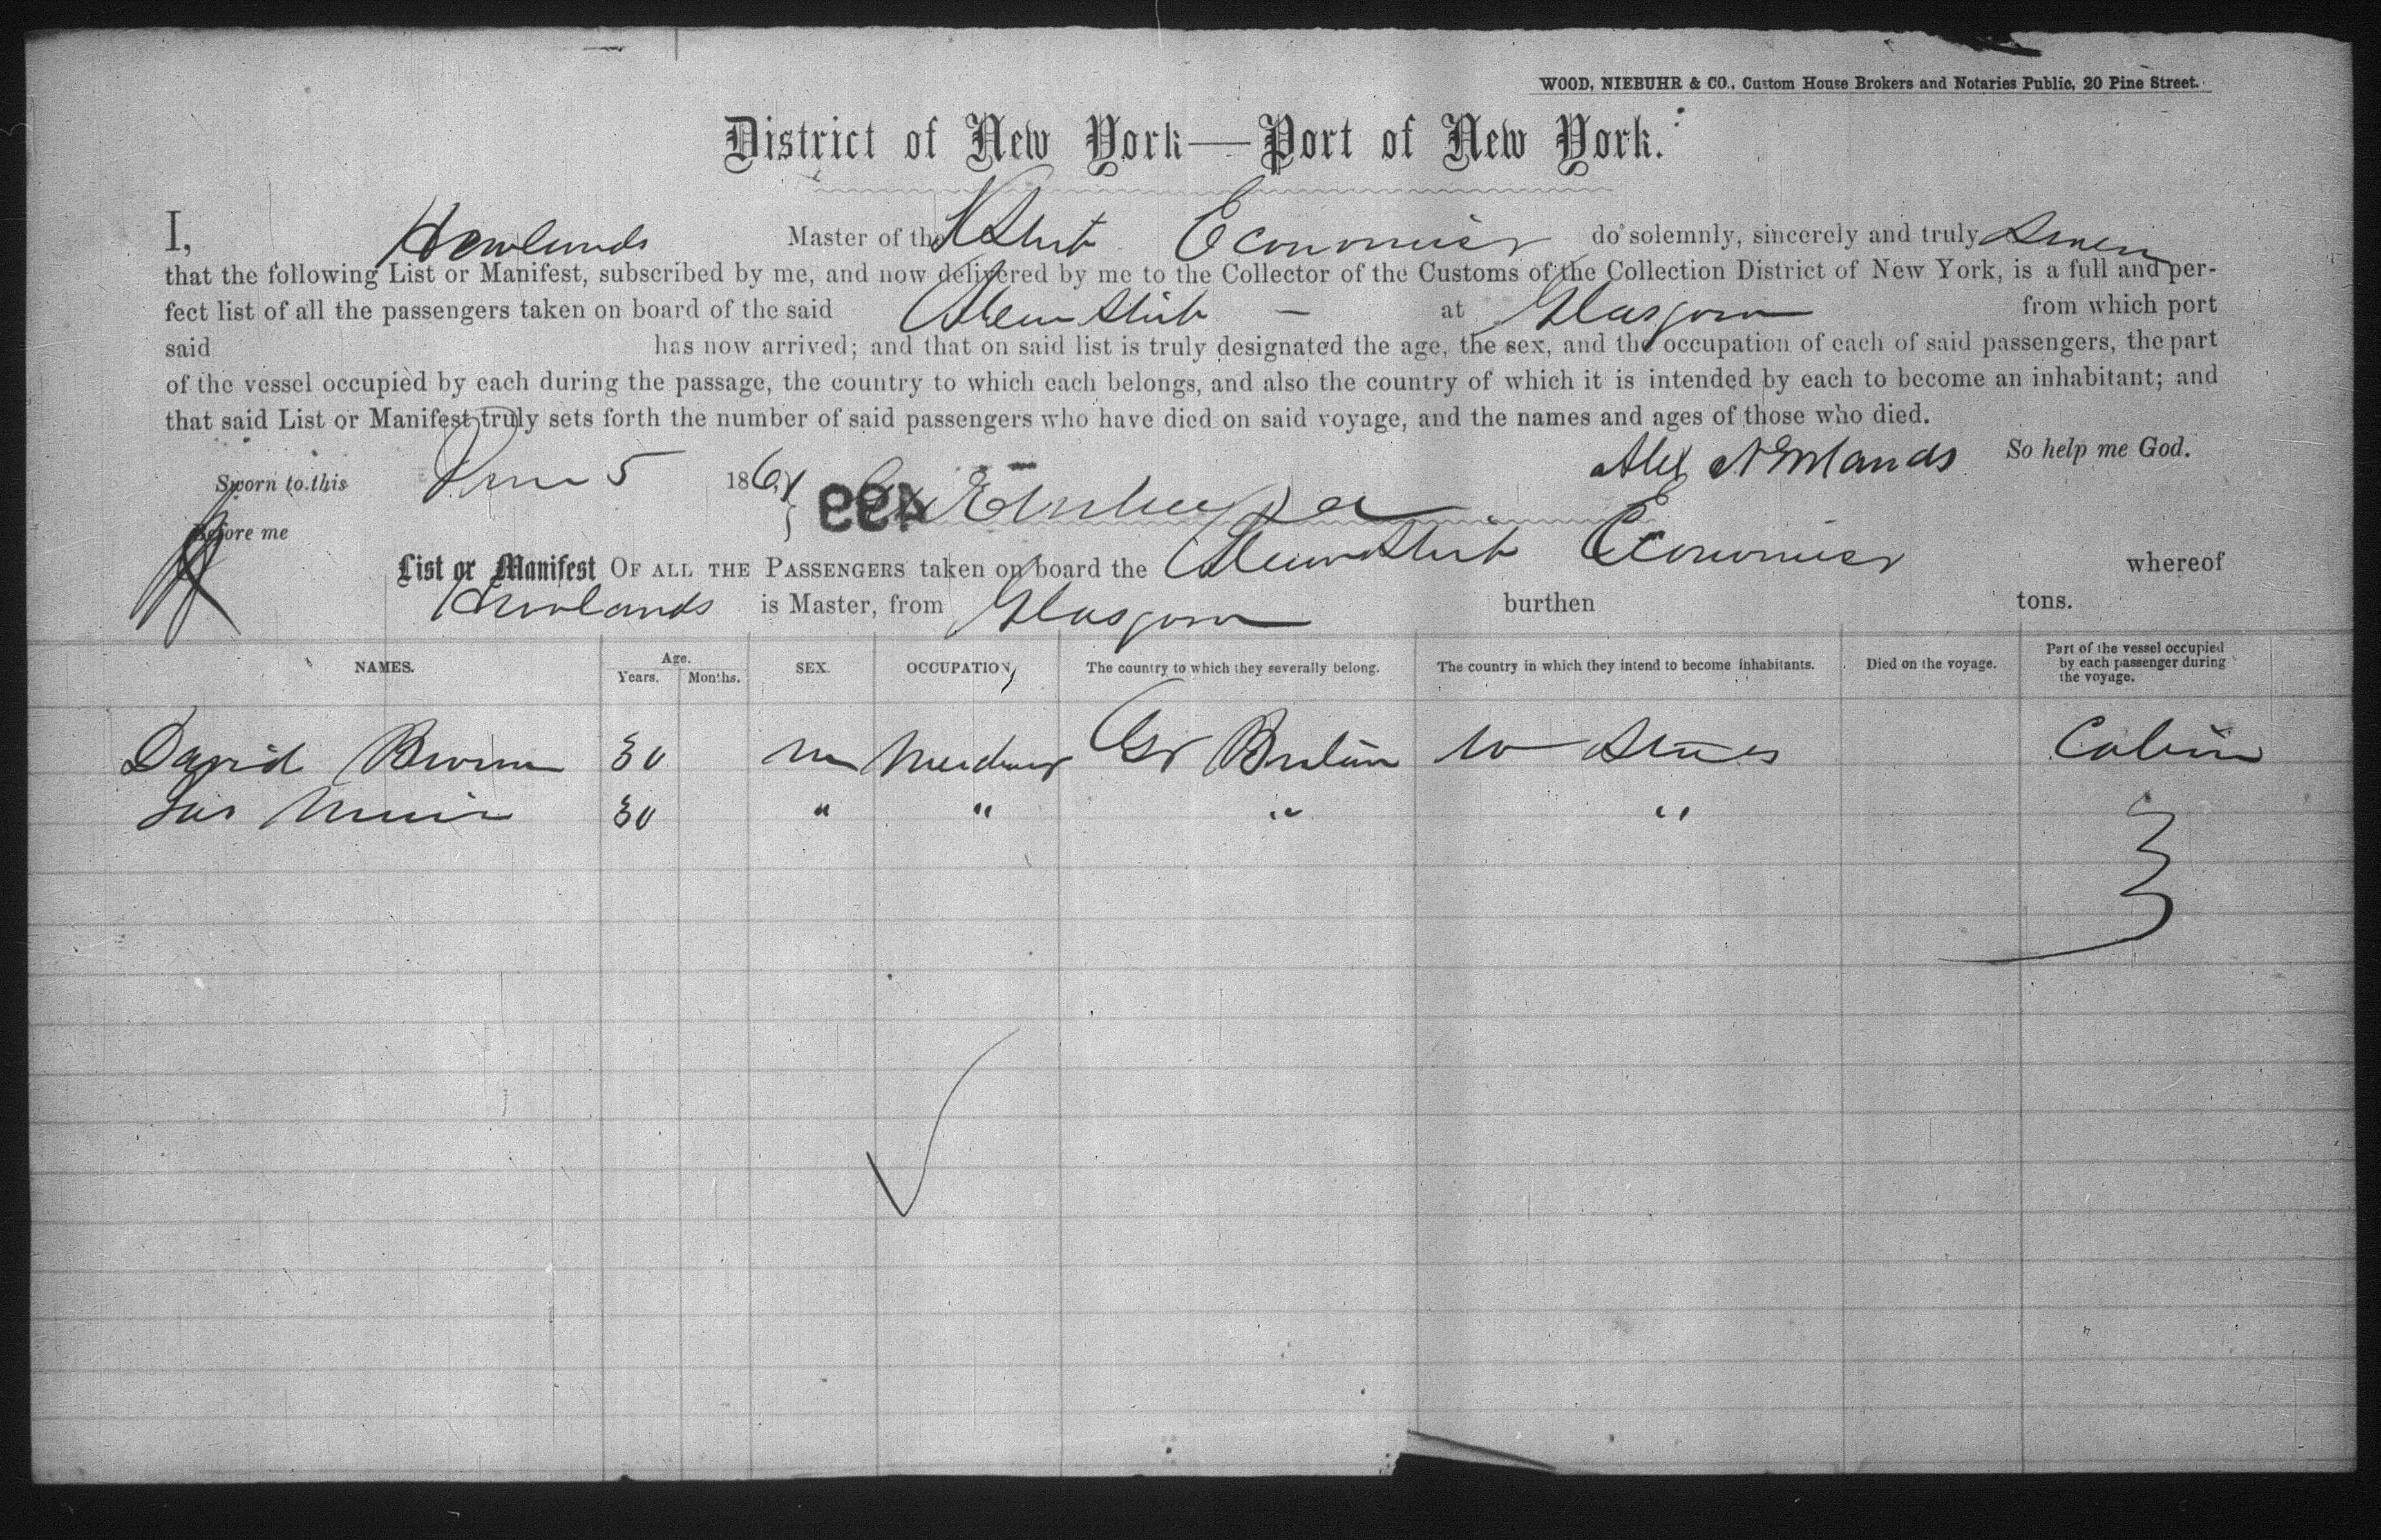 WOOD, NIEBUHR & CO., Custom House Brokers and Notaries Public, 20 Pine Street.
District of New York—Port of New York.
I, Newlands Master of the Economist do solemnly, sincerely and truly Swear
that the following List or Manifest, subscribed by me, and now delivered by me to the Collector of the Customs of the Collection District of New York, is a full and per-
fect list of all the passengers taken on board of the said Steam Ship — at Glasgow from which port
said has now arrived; and that on said list is truly designated the age, the sex, and the occupation of each of said passengers, the part
of the vessel occupied by each during the passage, the country to which each belongs, and also the country of which it is intended by each to become an inhabitant; and
that said List or Manifest truly sets forth the number of said passengers who have died on said voyage, and the names and ages of those who died.
Alex Newlands So help me God.
Sworn to this June 5 186
499
Before me
List or Manifest OF ALL THE PASSENGERS taken on board the Steam Ship Economist whereof
Newlands is Master, from Glasgow burthen tons.
NAMES. Age. Years. Months. SEX. OCCUPATION, The country to which they severally belong. The country in which they intend to become inhabitants. Died on the voyage. Part of the vessel occupied by each passenger during the voyage.
David Brown 30 m Gr Britain U States Cabin
Jas Muir 30 " " " "